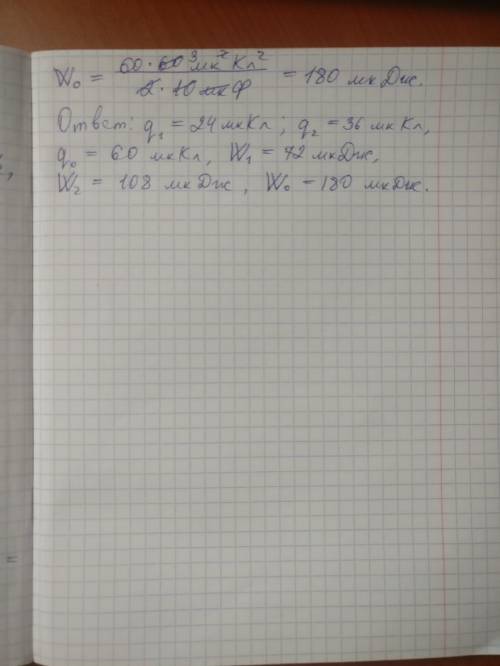 W₀ = 60 · 60³ мк² Кл² / 2 · 10 мкФ = 180 мкДж.
Ответ: q₁ = 24 мкКл ; q₂ = 36 мкКл,
q₀ = 60 мкКл, W₁ = 72 мкДж,
W₂ = 108 мкДж, W₀ = 180 мкДж.
=